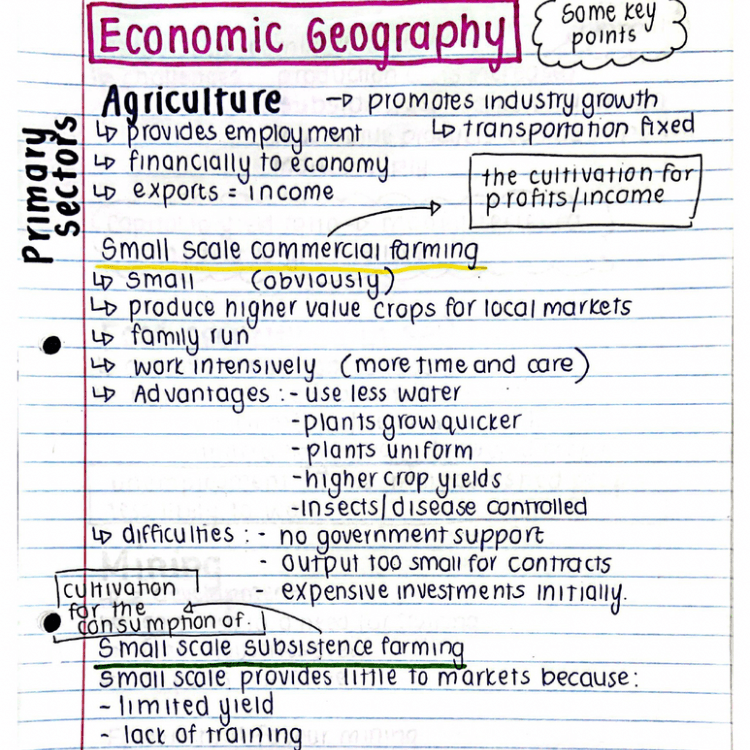 Economic Geography
Some key
points
Primary
sectors
Agriculture → promotes industry growth
↳ provides employment ↳ transportation fixed
↳ financially to economy
↳ exports = income
the cultivation for
profits/income
Small scale commercial farming
↳ small (obviously)
↳ produce higher value crops for local markets
↳ family run
↳ work intensively (more time and care)
↳ Advantages :- use less water
- plants grow quicker
- plants uniform
- higher crop yields
- insects/disease controlled
↳ difficulties :- no government support
- output too small for contracts
- expensive investments initially.
cultivation
for the
consumption of.
Small scale subsistence farming
Small scale provides little to markets because:
- limited yield
- lack of training